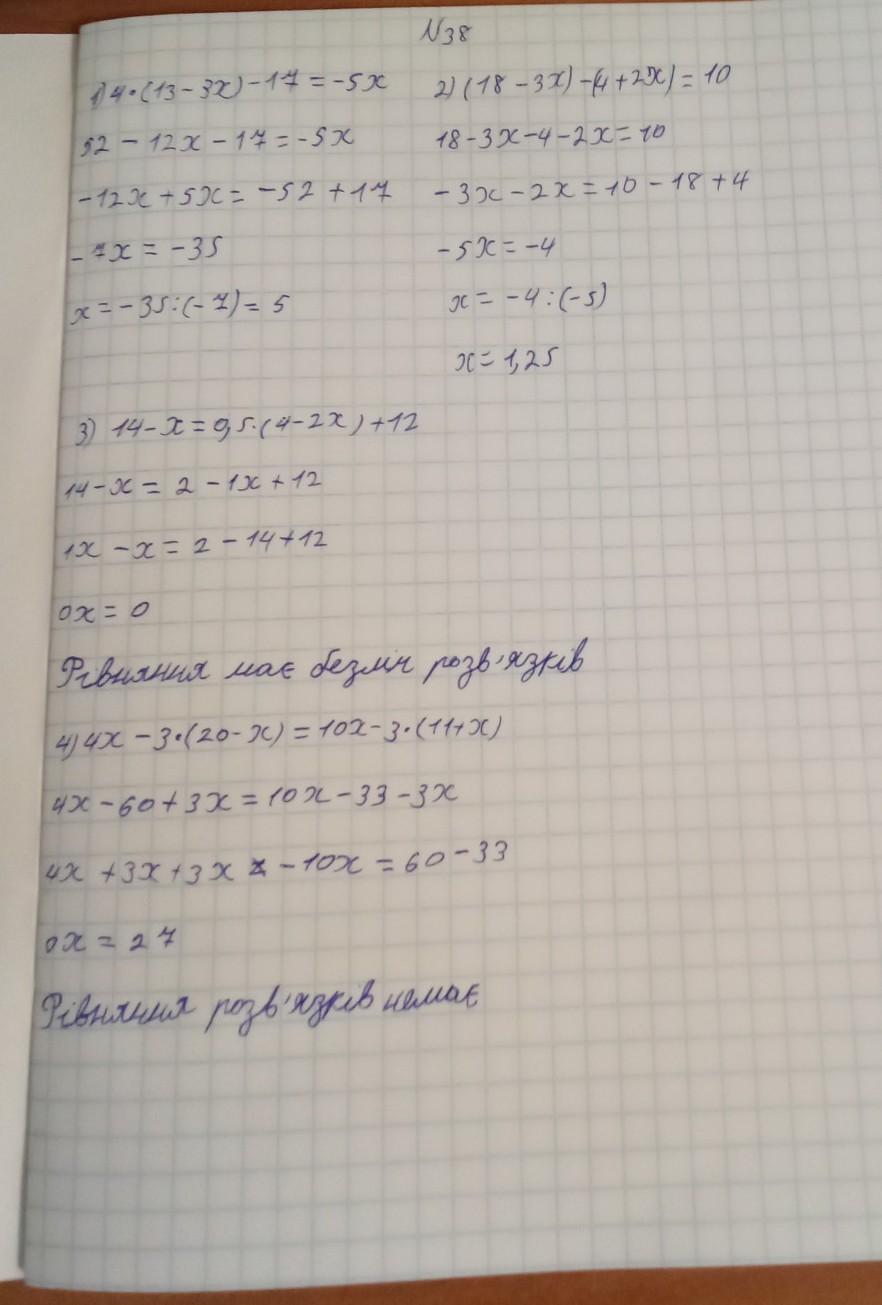 N38
1) 4·(13-3x)-17=-5x
52-12x-17=-5x
-12x+5x=-52+17
-7x=-35
x=-35:(-7)=5
2) (18-3x)-(4+2x)=10
18-3x-4-2x=10
-3x-2x=10-18+4
-5x=-4
x=-4:(-5)
x=1,25
3) 14-x=0,5·(4-2x)+12
14-x=2-1x+12
1x-x=2-14+12
0x=0
Рівняння має безліч розв'язків
4) 4x-3·(20-x)=10x-3·(11+x)
4x-60+3x=10x-33-3x
4x+3x+3x-10x=60-33
0x=27
Рівняння розв'язків немає